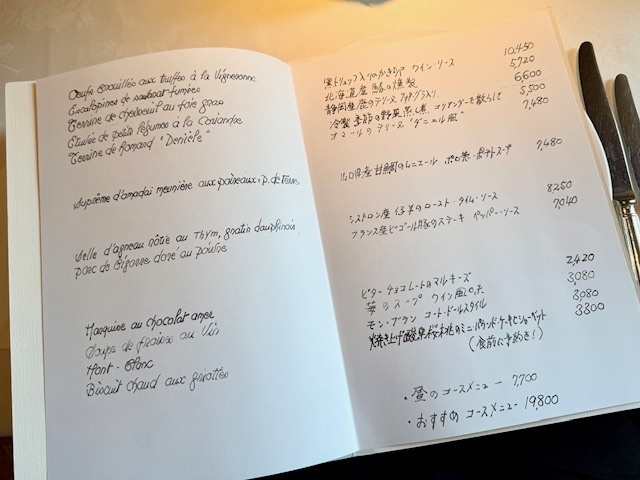 Oeufs brouillés aux truffes à la Vigneronne
Escalopines de saumon fumées
Terrine de chevreuil au foie gras
Etuvée de petits légumes à la Coriandre
Terrine de Homard "Denièle"
Suprême d'amadai meunière aux poireaux-p. de Terre
Selle d'agneau rôtie au Thym, gratin dauphinois
porc de Bigorre doré au poivre
Marquise au chocolat amer
Soupe de fraises au Vin
Mont-Blanc
Biscuit chaud aux griottes
黒トリュフ入りのかきたま ワイン・ソース 10,450
北海道産 の燻製 5,720
静岡産鹿のテリーヌ フォアグラ入り 6,600
冷製 季節の野菜蒸し煮 コリアンダーを散らして 5,500
オマールのテリーヌ "ダニエル風" 7,480
山口県産甘鯛のムニエール ポロ葱・ポテトスープ 7,480
シストロン産 仔羊のロースト・タイム・ソース 8250
フランス産ビゴール豚のステーキ ペッパー・ソース 7,040
ビターチョコレートのマルキーズ 2,420
苺のスープ ワイン風味 3,080
モン・ブラン コート・ドールスタイル 3,080
焼き上げ酸果桜桃のミニ・パウンドケーキとシャーベット 3300
(食前に予約を!)
・昼のコースメニュー 7,700
・おすすめ コースメニュー 19,800